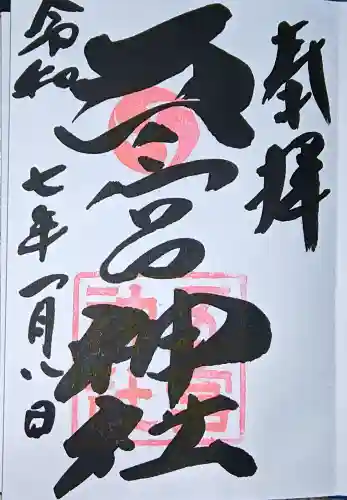 奉拝
五宮神社
令和七年一月八日